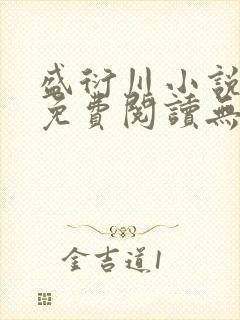 盛衍川小說
免費閱讀無
金吉道1